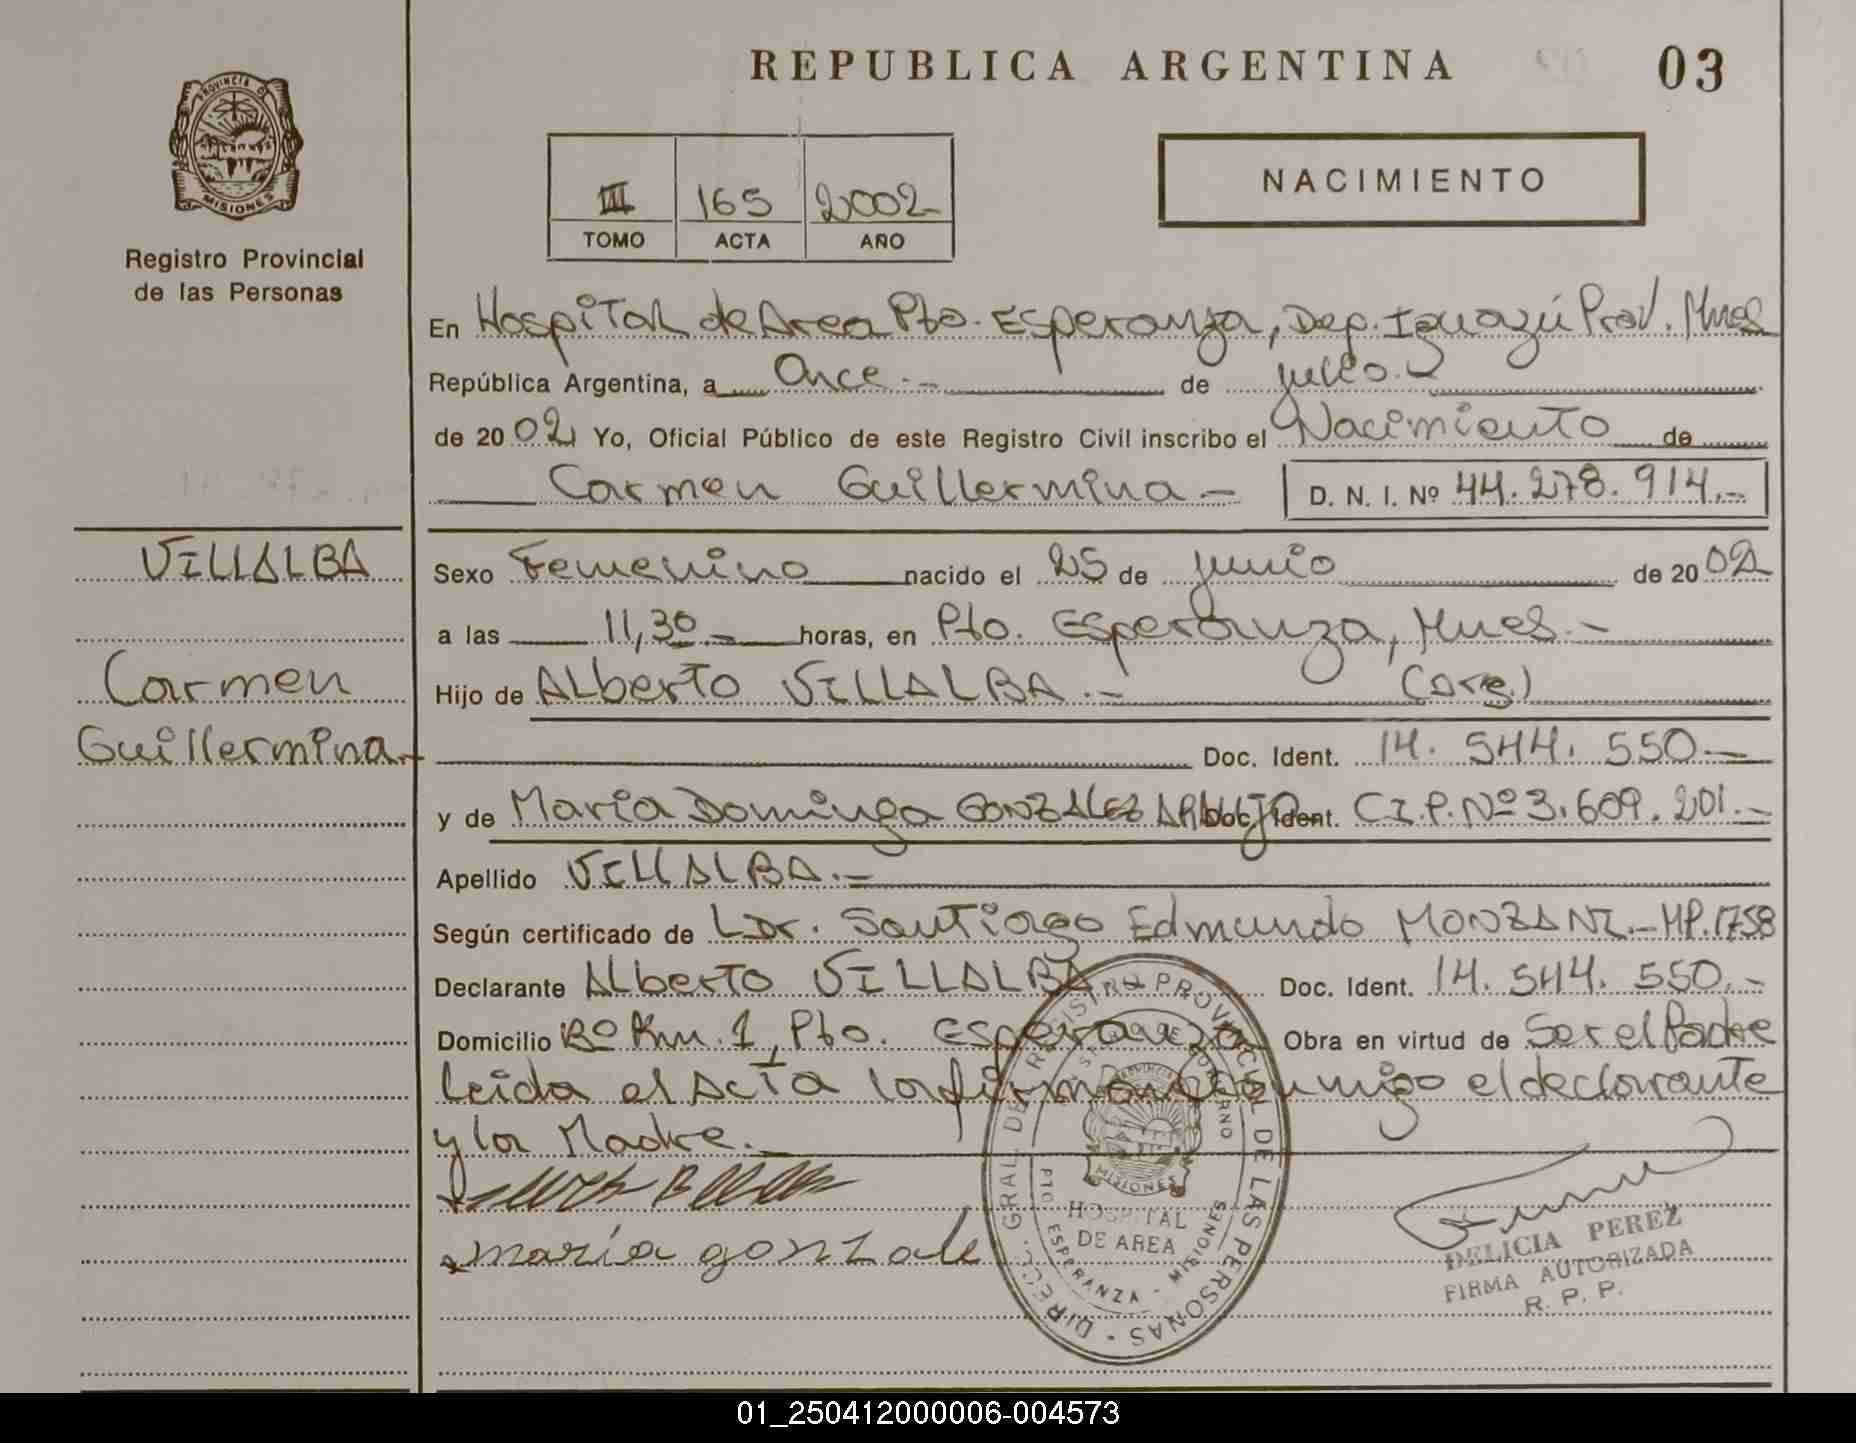 REPUBLICA ARGENTINA
03
PROVINCIA D
MISIONES
Registro Provincial
de las Personas
III 165 2002
TOMO ACTA AÑO
NACIMIENTO
En Hospital de Area Pto. Esperanza, Dep. Iguazú Prov. Mnes
República Argentina, a Once.- de julio.-
de 2002 Yo, Oficial Público de este Registro Civil inscribo el Nacimiento de
Carmen Guillermina - D. N. I. Nº 44.278.914.-
VILLALBA
Carmen
Guillermina-
Sexo Femenino nacido el 25 de junio de 2002
a las 11,30 - horas, en Pto. Esperanza, Mnes.-
Hijo de Alberto VILLALBA.- (Arg.)
Doc. Ident. 14. 544. 550.-
y de Maria Dominga GONZALEZ ARAUJO Doc. Ident. C.I.P. Nº 3.609.201.-
Apellido VILLALBA.-
Según certificado de Dr. Santiago Edmundo MONZANI.- MP.1758
Declarante Alberto VILLALBA Doc. Ident. 14. 544. 550.-
Domicilio Bº Km. 1, Pto. Esperanza Obra en virtud de Ser el Padre
Leida el Acta la firman conmigo el declarante
y la Madre.
maria gonzale
DIRECC. GRAL. DE REGISTRO PROVINCIAL DE LAS PERSONAS
PROVINCIA
MISIONES
HOSPITAL
DE AREA
PTO ESPERANZA - MISIONES
DELICIA PEREZ
FIRMA AUTORIZADA
R. P. P.
01_250412000006-004573